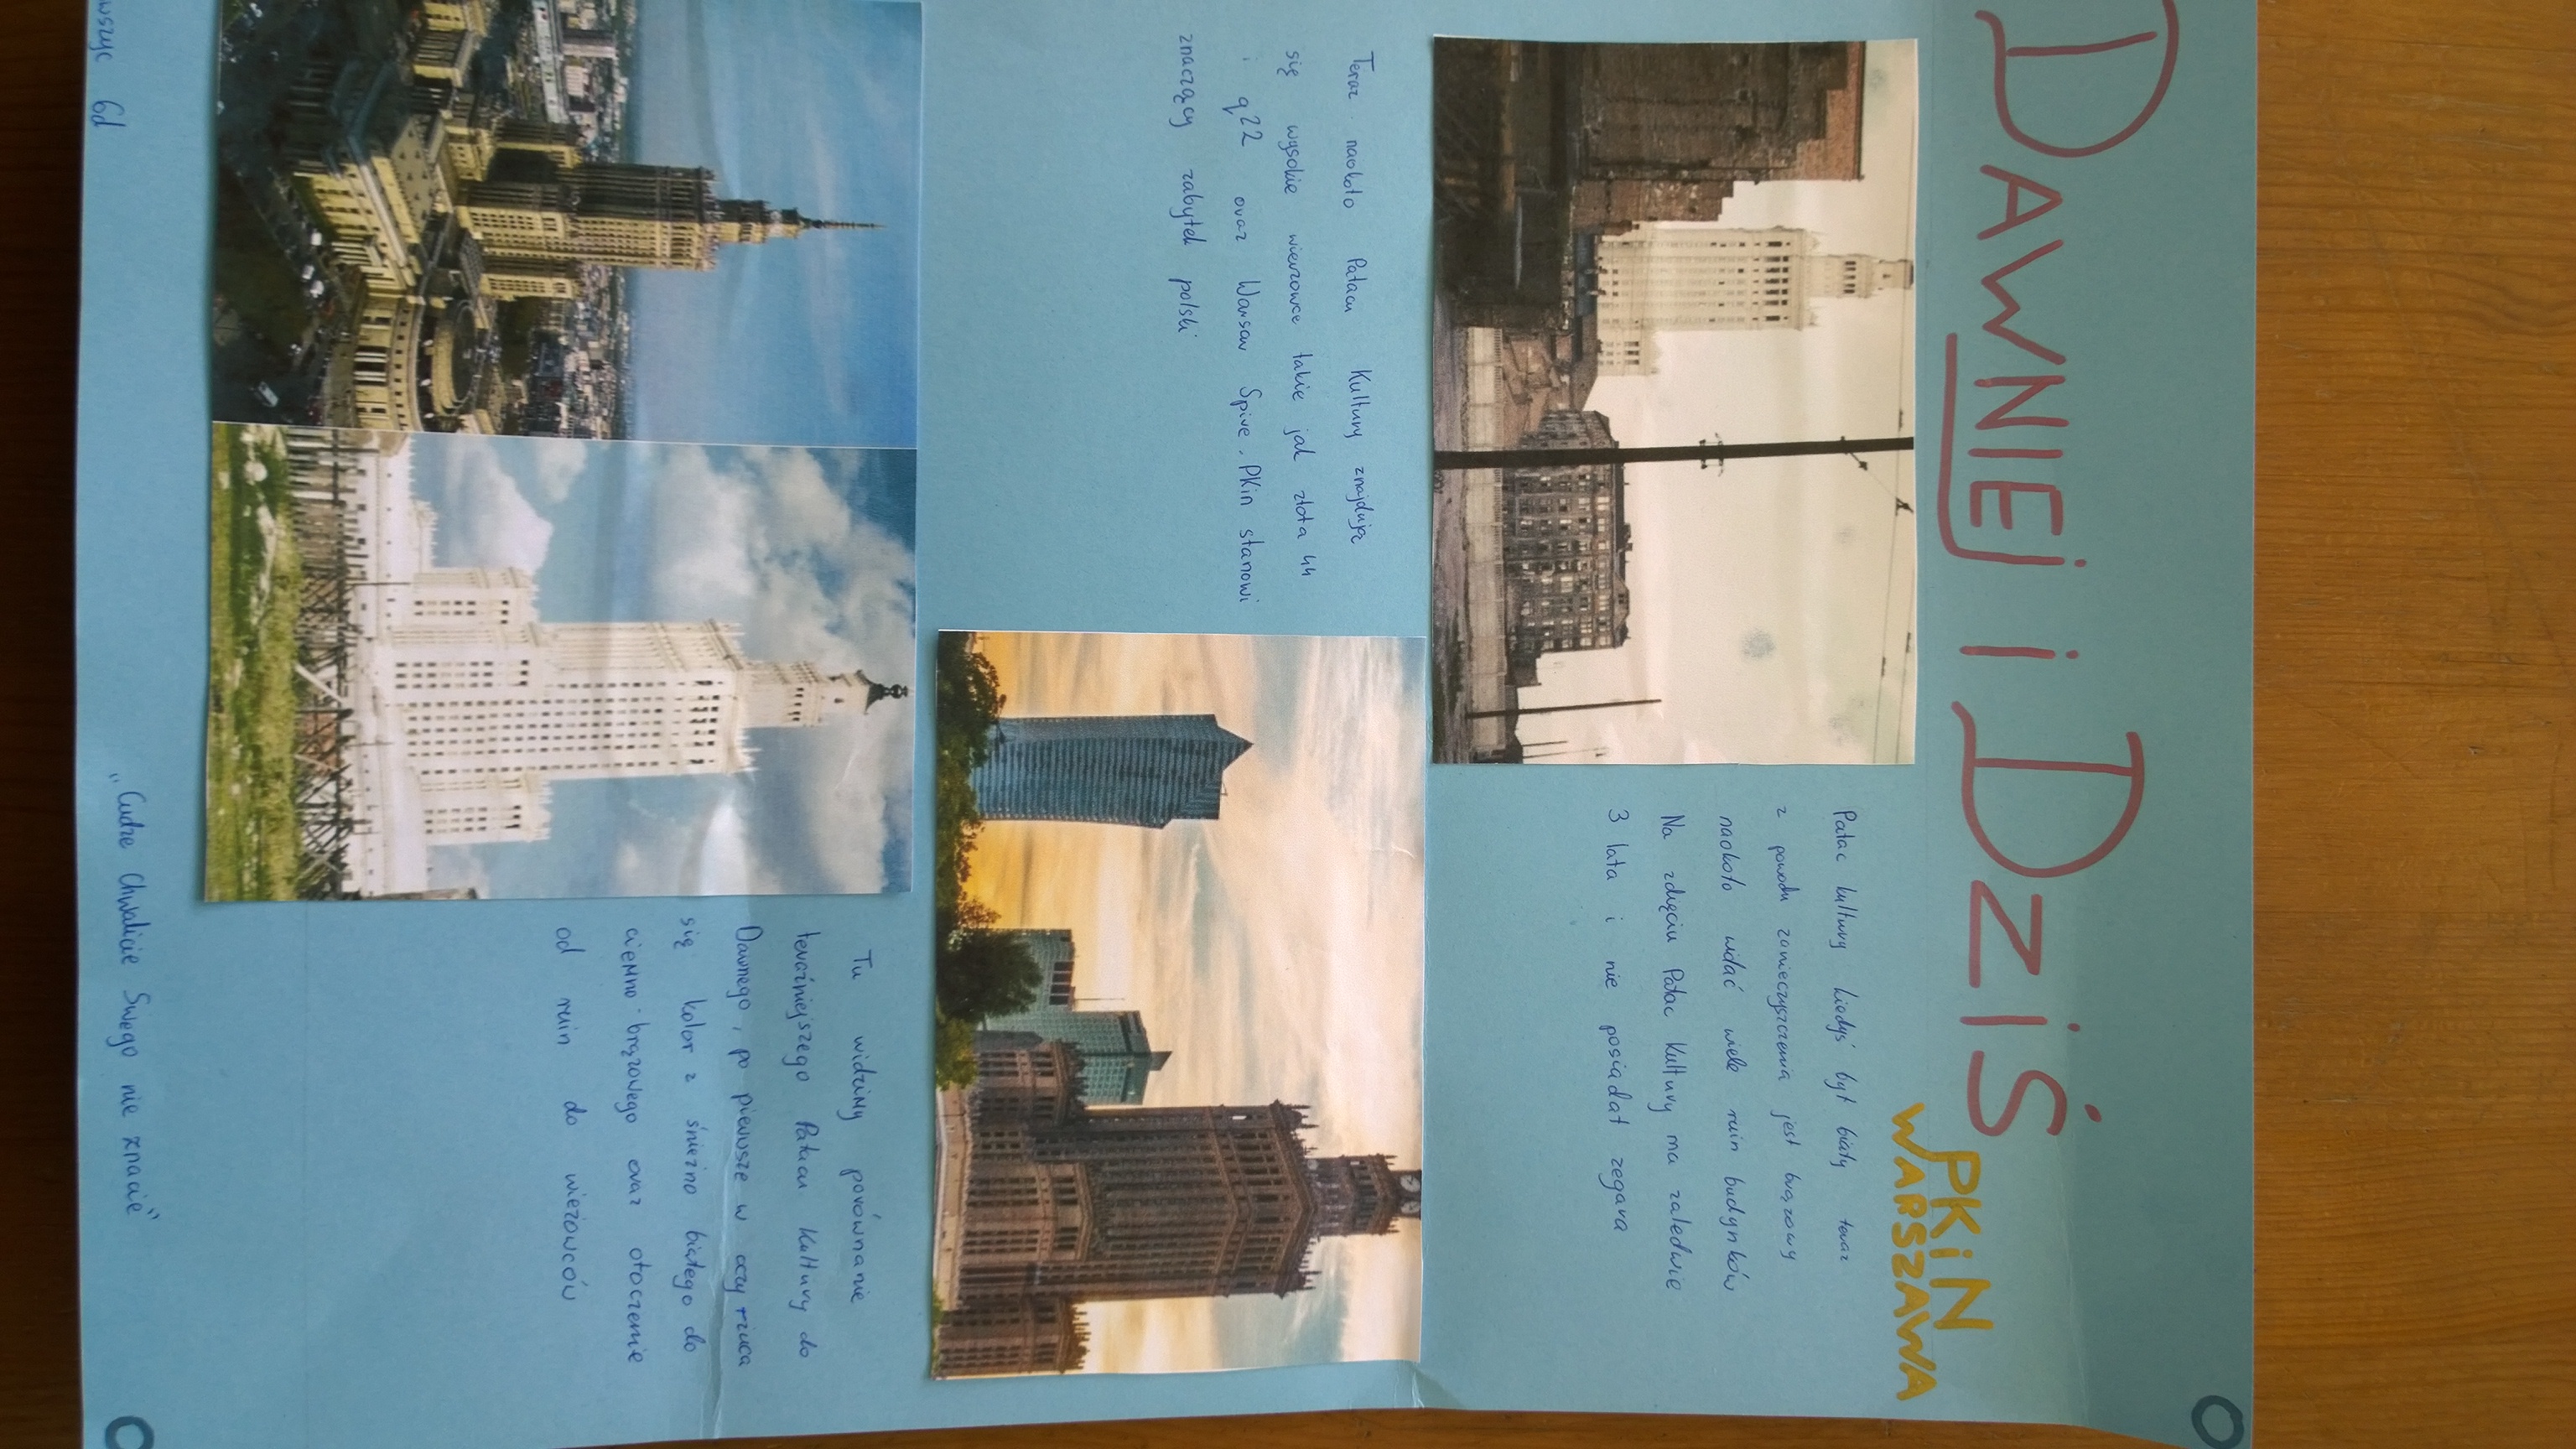 DAWNIEJ i DZiŚ
PKiN
WARSZAWA
Pałac kultury kiedyś był biały teraz
z powodu zanieczyszczenia jest brązowy
naokoło widać wiele ruin budynków
Na zdjęciu Pałac Kultury ma zaledwie
3 lata i nie posiadał zegara
Teraz naokoło Pałacu Kultury znajdują
się wysokie wierzowce takie jak złota 44
i q22 oraz Warsaw Spire. PKin stanowi
znaczący zabytek polski
Tu widzimy porównanie
teraźniejszego Pałacu Kultury do
Dawnego, po pierwsze w oczy rzuca
się kolor z śnieżno białego do
ciemno-brązowego oraz otoczenie
od ruin do wieżowców
6d
"Cudze Chwalicie Swego nie znacie"